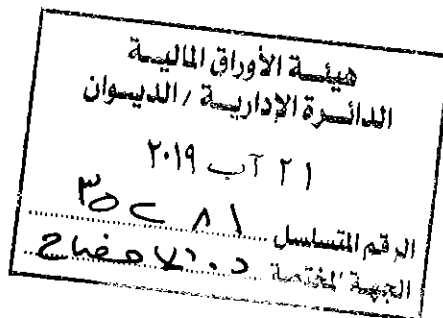 هيئة الأوراق المالية
الدائرة الإدارية / الديوان
٢١ آب ٢٠١٩
الرقم المتسلسل ٣٥٢٨١
الجهة المختصة الإفصاح